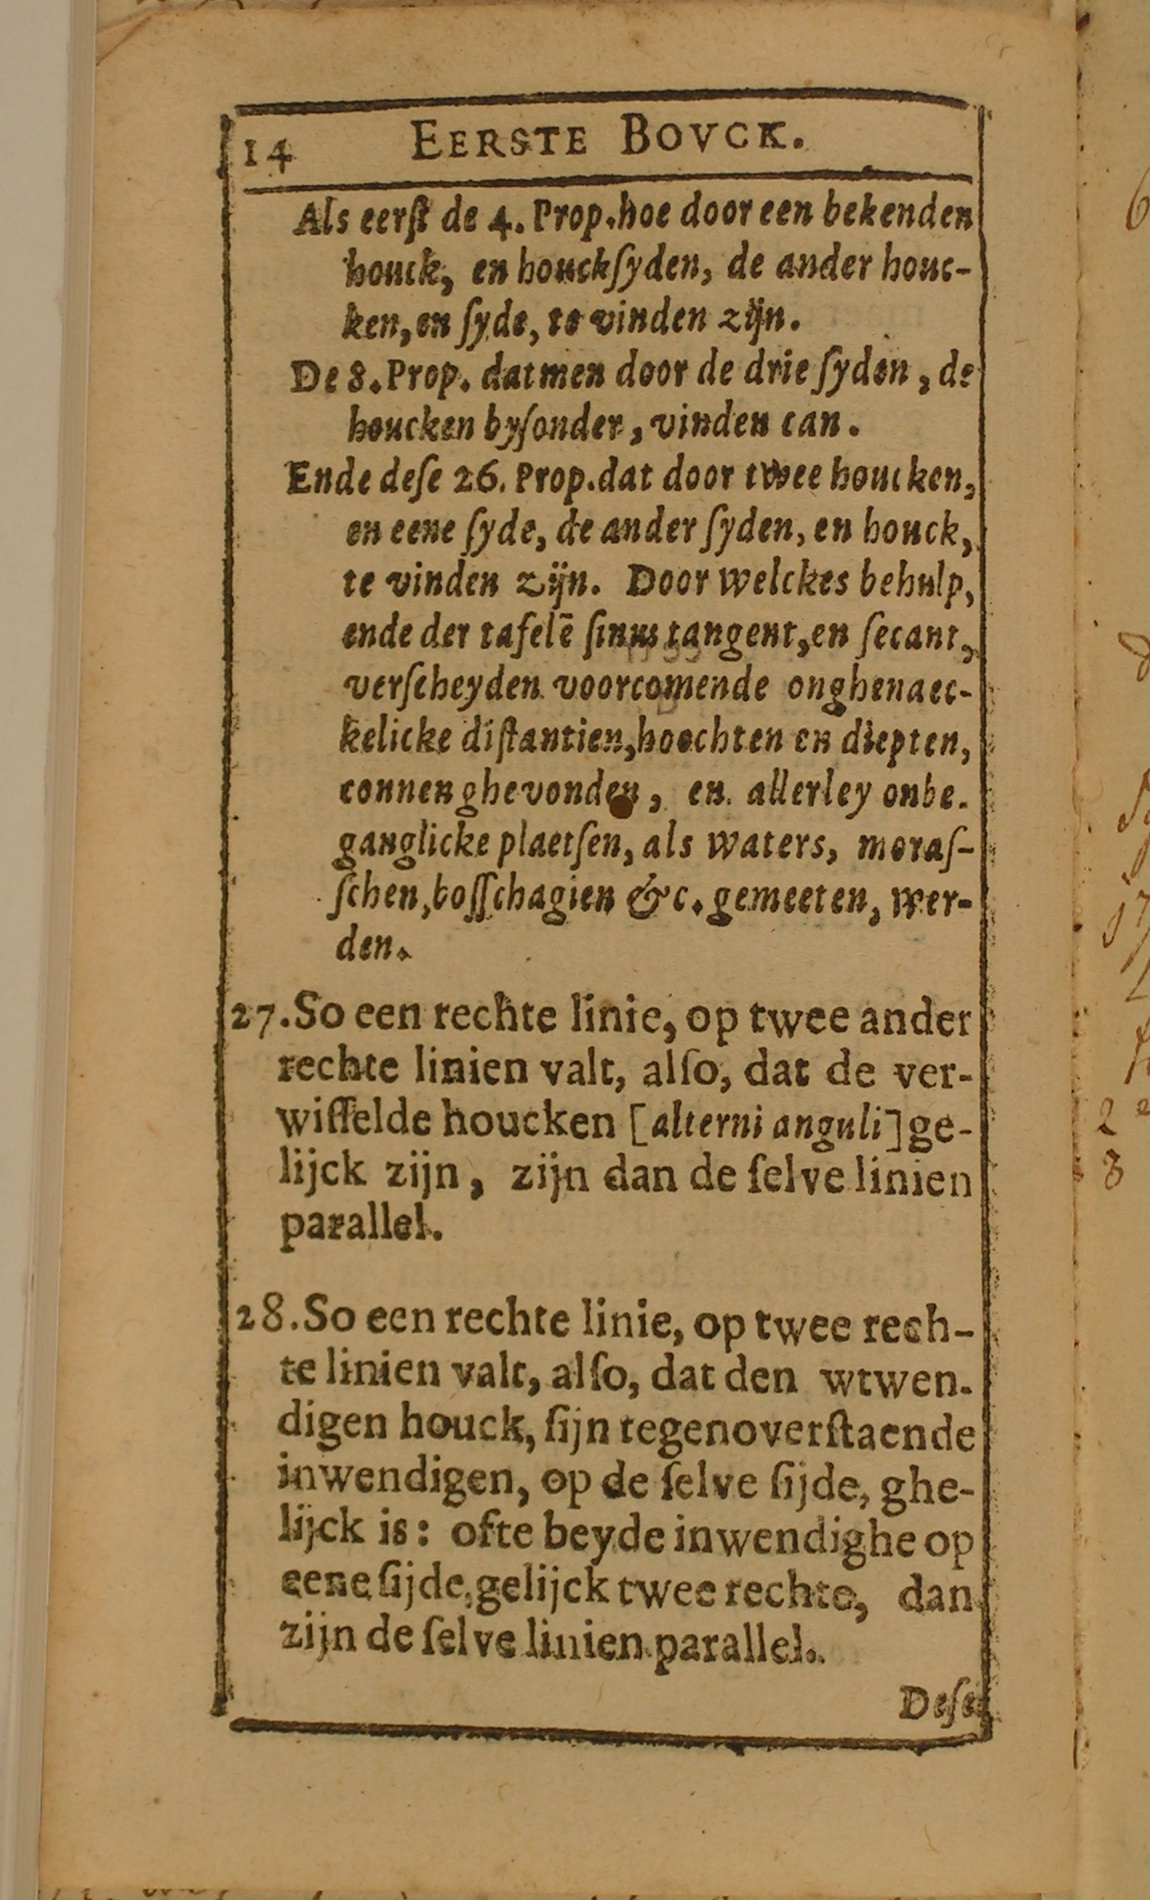 14 EERSTE BOVCK.
Als eerſt de 4. Prop. hoe door een bekenden
houck, en houckſyden, de ander houc-
ken, en ſyde, te vinden zijn.
De 8. Prop. datmen door de drie ſyden, de
houcken byſonder, vinden can.
Ende deſe 26. Prop. dat door twee houcken,
en eene ſyde, de ander ſyden, en houck,
te vinden zijn. Door welckes behulp,
ende der tafelē ſinus tangent, en ſecant,
verſcheyden voorcomende onghenaec-
kelicke diſtantien, hoochten en diepten,
connen ghevonden, en allerley onbe-
ganglicke plaetſen, als waters, moraſ-
ſchen, boſſchagien &c. gemeeten, wer-
den.
27. So een rechte linie, op twee ander
rechte linien valt, alſo, dat de ver-
wiſſelde houcken [alterni anguli] ge-
lijck zijn, zijn dan de ſelve linien
parallel.
28. So een rechte linie, op twee rech-
te linien valt, alſo, dat den wtwen-
digen houck, ſijn tegenoverſtaende
inwendigen, op de ſelve ſijde, ghe-
lijck is: ofte beyde inwendighe op
eene ſijde, gelijck twee rechte, dan
zijn de ſelve linien parallel.
Deſe